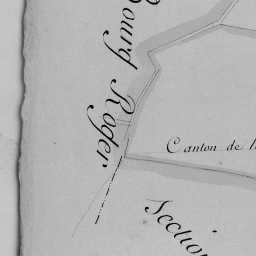 Bourg Roger
Canton de
Section